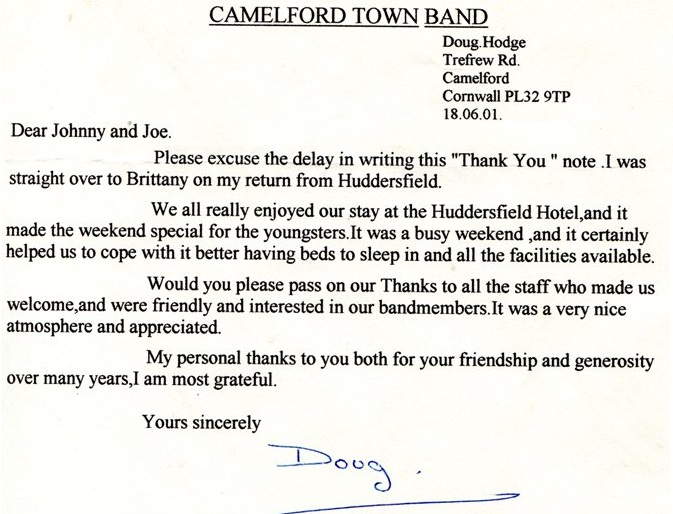 CAMELFORD TOWN BAND
Doug.Hodge
Trefrew Rd.
Camelford
Cornwall PL32 9TP
18.06.01.
Dear Johnny and Joe.
Please excuse the delay in writing this "Thank You " note .I was
straight over to Brittany on my return from Huddersfield.
We all really enjoyed our stay at the Huddersfield Hotel,and it
made the weekend special for the youngsters.It was a busy weekend ,and it certainly
helped us to cope with it better having beds to sleep in and all the facilities available.
Would you please pass on our Thanks to all the staff who made us
welcome,and were friendly and interested in our bandmembers.It was a very nice
atmosphere and appreciated.
My personal thanks to you both for your friendship and generosity
over many years,I am most grateful.
Yours sincerely
Doug.